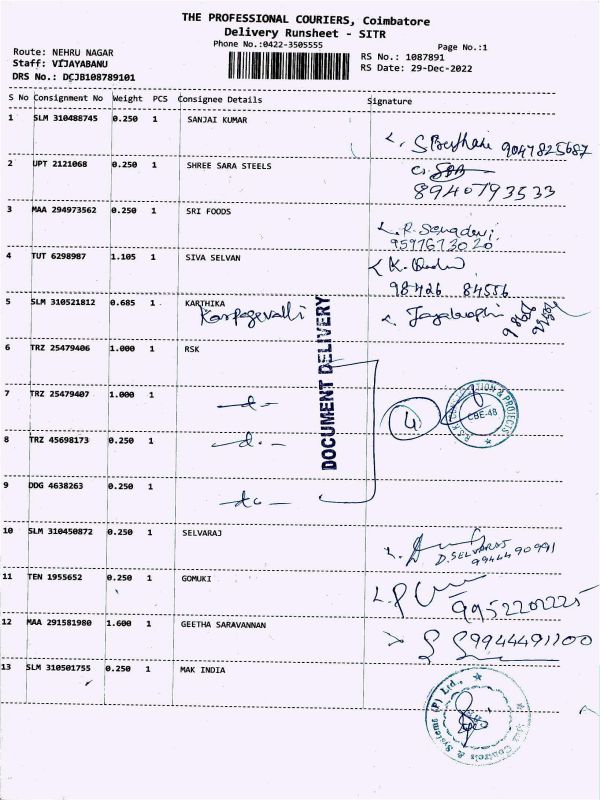 THE PROFESSIONAL COURIERS, Coimbatore
Delivery Runsheet - SITR
Phone No.:0422-3505555
Page No.:1
Route: NEHRU NAGAR
RS No.: 1087891
Staff: VIJAYABANU
RS Date: 29-Dec-2022
DRS No.: DCJB108789101
S No Consignment No Weight PCS Consignee Details Signature
1 SLM 310488745 0.250 1 SANJAI KUMAR
9047825687
2 UPT 2121068 0.250 1 SHREE SARA STEELS
8940793533
3 MAA 294973562 0.250 1 SRI FOODS
9597673020
4 TUT 6298987 1.105 1 SIVA SELVAN
98426 84556
5 SLM 310521812 0.685 1 KARTHIKA
Karpagevalli
6 TRZ 25479406 1.000 1 RSK
DOCUMENT DELIVERY
7 TRZ 25479407 1.000 1
4
CBE-48
8 TRZ 45698173 0.250 1
9 DDG 4638263 0.250 1
10 SLM 310450872 0.250 1 SELVARAJ
D.SELVARAJ
9944490991
11 TEN 1955652 0.250 1 GOMUKI
9952202225
12 MAA 291581980 1.600 1 GEETHA SARAVANNAN
9944491100
13 SLM 310501755 0.250 1 MAK INDIA
Controls & Systems (P) Ltd.,